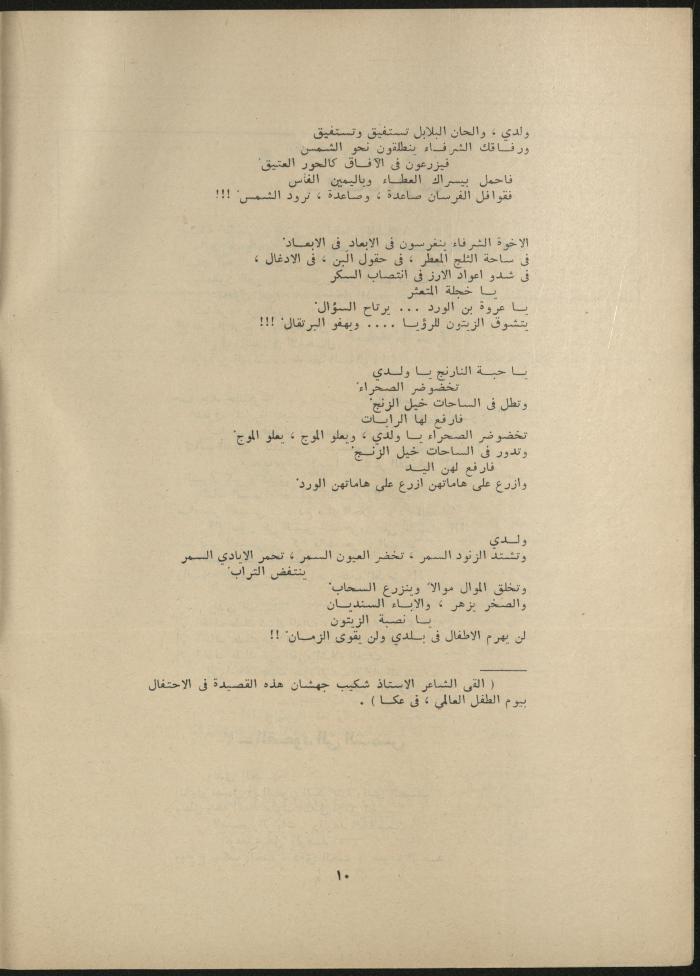 ولدي ، والحان البلابل تستفيق وتستفيق
ورفـاقك الشرفـاء ينطلقون نحو الشمس
فيزرعون فى الآفـاق كالحور العتيق ْ
فاحمل بيسراك العطـاء وباليمين الفأس
فقوافل الفرسان صاعدة ، وصاعدة ، ترود الشمس ْ !!!
الاخوة الشرفاء ينغرسون فى الابعاد فى الابعـاد ْ
فى ساحة الثلج المعطر ، فى حقول البن ، فى الادغال ،
فى شدو اعواد الارز فى انتصاب السكر
يـا خجلة المتعثر
يـا عروة بن الورد ... يرتاح السؤال ْ
يتشوق الزيتون للرؤيـا .... ويهفو البرتقال ْ !!!
يـا حبـة النارنج يـا ولـدي
تخضوضر الصحراء ْ
وتطل فى الساحات خيل الزنج ْ
فارفع لها الرايـات
تخضوضر الصحراء يـا ولدي ، ويعلو الموج ، يعلو الموج ْ
وتدور فى الساحات خيل الزنـج ْ
فارفع لهن اليـد
وازرع على هاماتهن ازرع على هاماتهن الورد ْ
ولـدي
وتشتد الزنود السمر ، تخضر العيون السمر ، تحمر الايادي السمر
ينتفض التراب ْ
وتخلق الموال موالا ً وينزرع السحاب ْ
والصخر يزهر ، والابـاء السنديـان
يـا نصبة الزيتون
لن يهرم الاطفال فى بـلدي ولن يقوى الزمـان ْ !!
( القى الشاعر الاستاذ شكيب جهشان هذه القصيدة فى الاحتفال
بيوم الطفل العالمي ، فى عكـا ) .
١٠